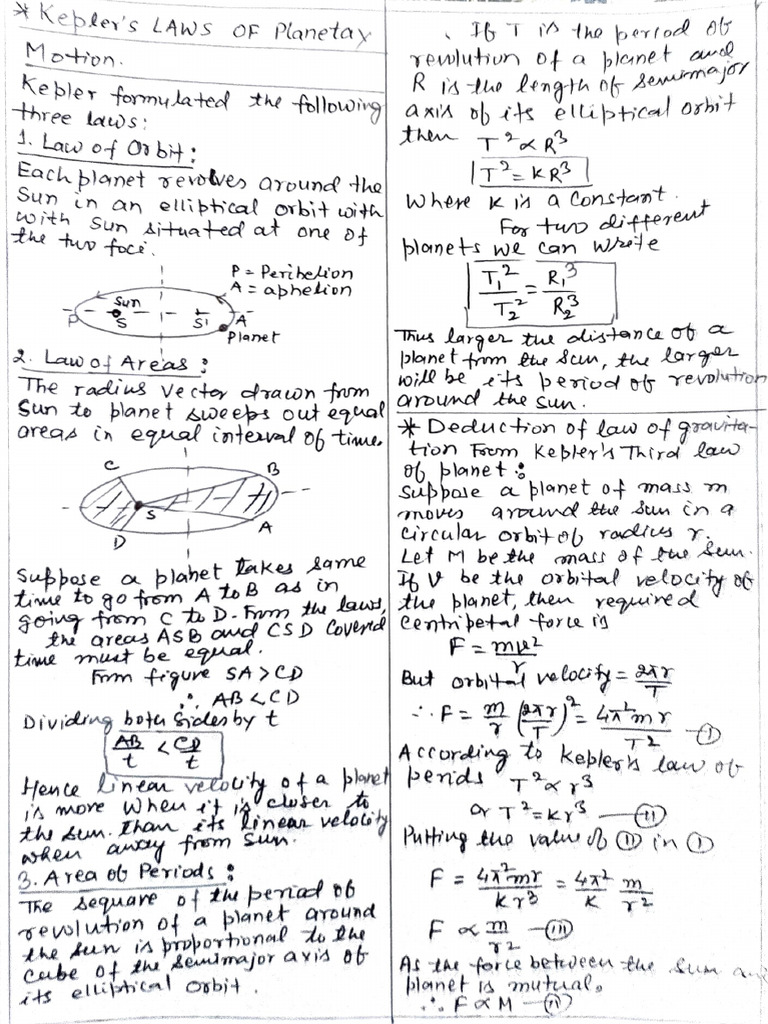 * Kepler's LAWS OF Planetay
Motion.
Kepler formulated the following
three laws:
1. Law of Orbit:
Each planet revolves around the
Sun in an elliptical orbit with
with Sun situated at one of
the two foci.
P = Perihelion
A = aphelion
Sun
P S S' A
Planet
2. Law of Areas:
The radius Vector drawn from
Sun to planet sweeps out equal
areas in equal interval of time.
C B
S
D A
Suppose a planet takes same
time to go from A to B as in
going from C to D. From the laws,
the areas ASB and CSD Covered
time must be equal.
From figure SA > CD
∴ AB < CD
Dividing both sides by t
AB/t < CD/t
Hence linear velocity of a planet
is more when it is closer to
the sun. than its linear velocity
when away from sun.
3. Area of Periods:
The sequare of the period of
revolution of a planet around
the sun is proportional to the
cube of the semimajor axis of
its elliptical orbit.
If T is the period of
revolution of a planet and
R is the length of semimajor
axis of its elliptical orbit
then T² ∝ R³
T² = KR³
Where K is a constant.
For two different
planets we can write
T₁²/T₂² = R₁³/R₂³
Thus larger the distance of a
planet from the sun, the larger
will be its period of revolution
around the sun.
* Deduction of law of gravita-
tion From Kepler's Third law
of planet:
Suppose a planet of mass m
moves around the sun in a
circular orbit of radius r.
Let M be the mass of the Sun.
If V be the orbital velocity of
the planet, then required
centripetal force is
F = mv²/r
But orbital velocity = 2πr/T
∴ F = m/r (2πr/T)² = 4π²mr/T² — (I)
According to Kepler's law of
periods T² ∝ r³
or T² = Kr³ — (II)
Putting the value of (II) in (I)
F = 4π²mr/Kr³ = 4π²/K m/r²
F ∝ m/r² — (III)
As the force between the sun an
planet is mutual.
∴ F ∝ M — (IV)